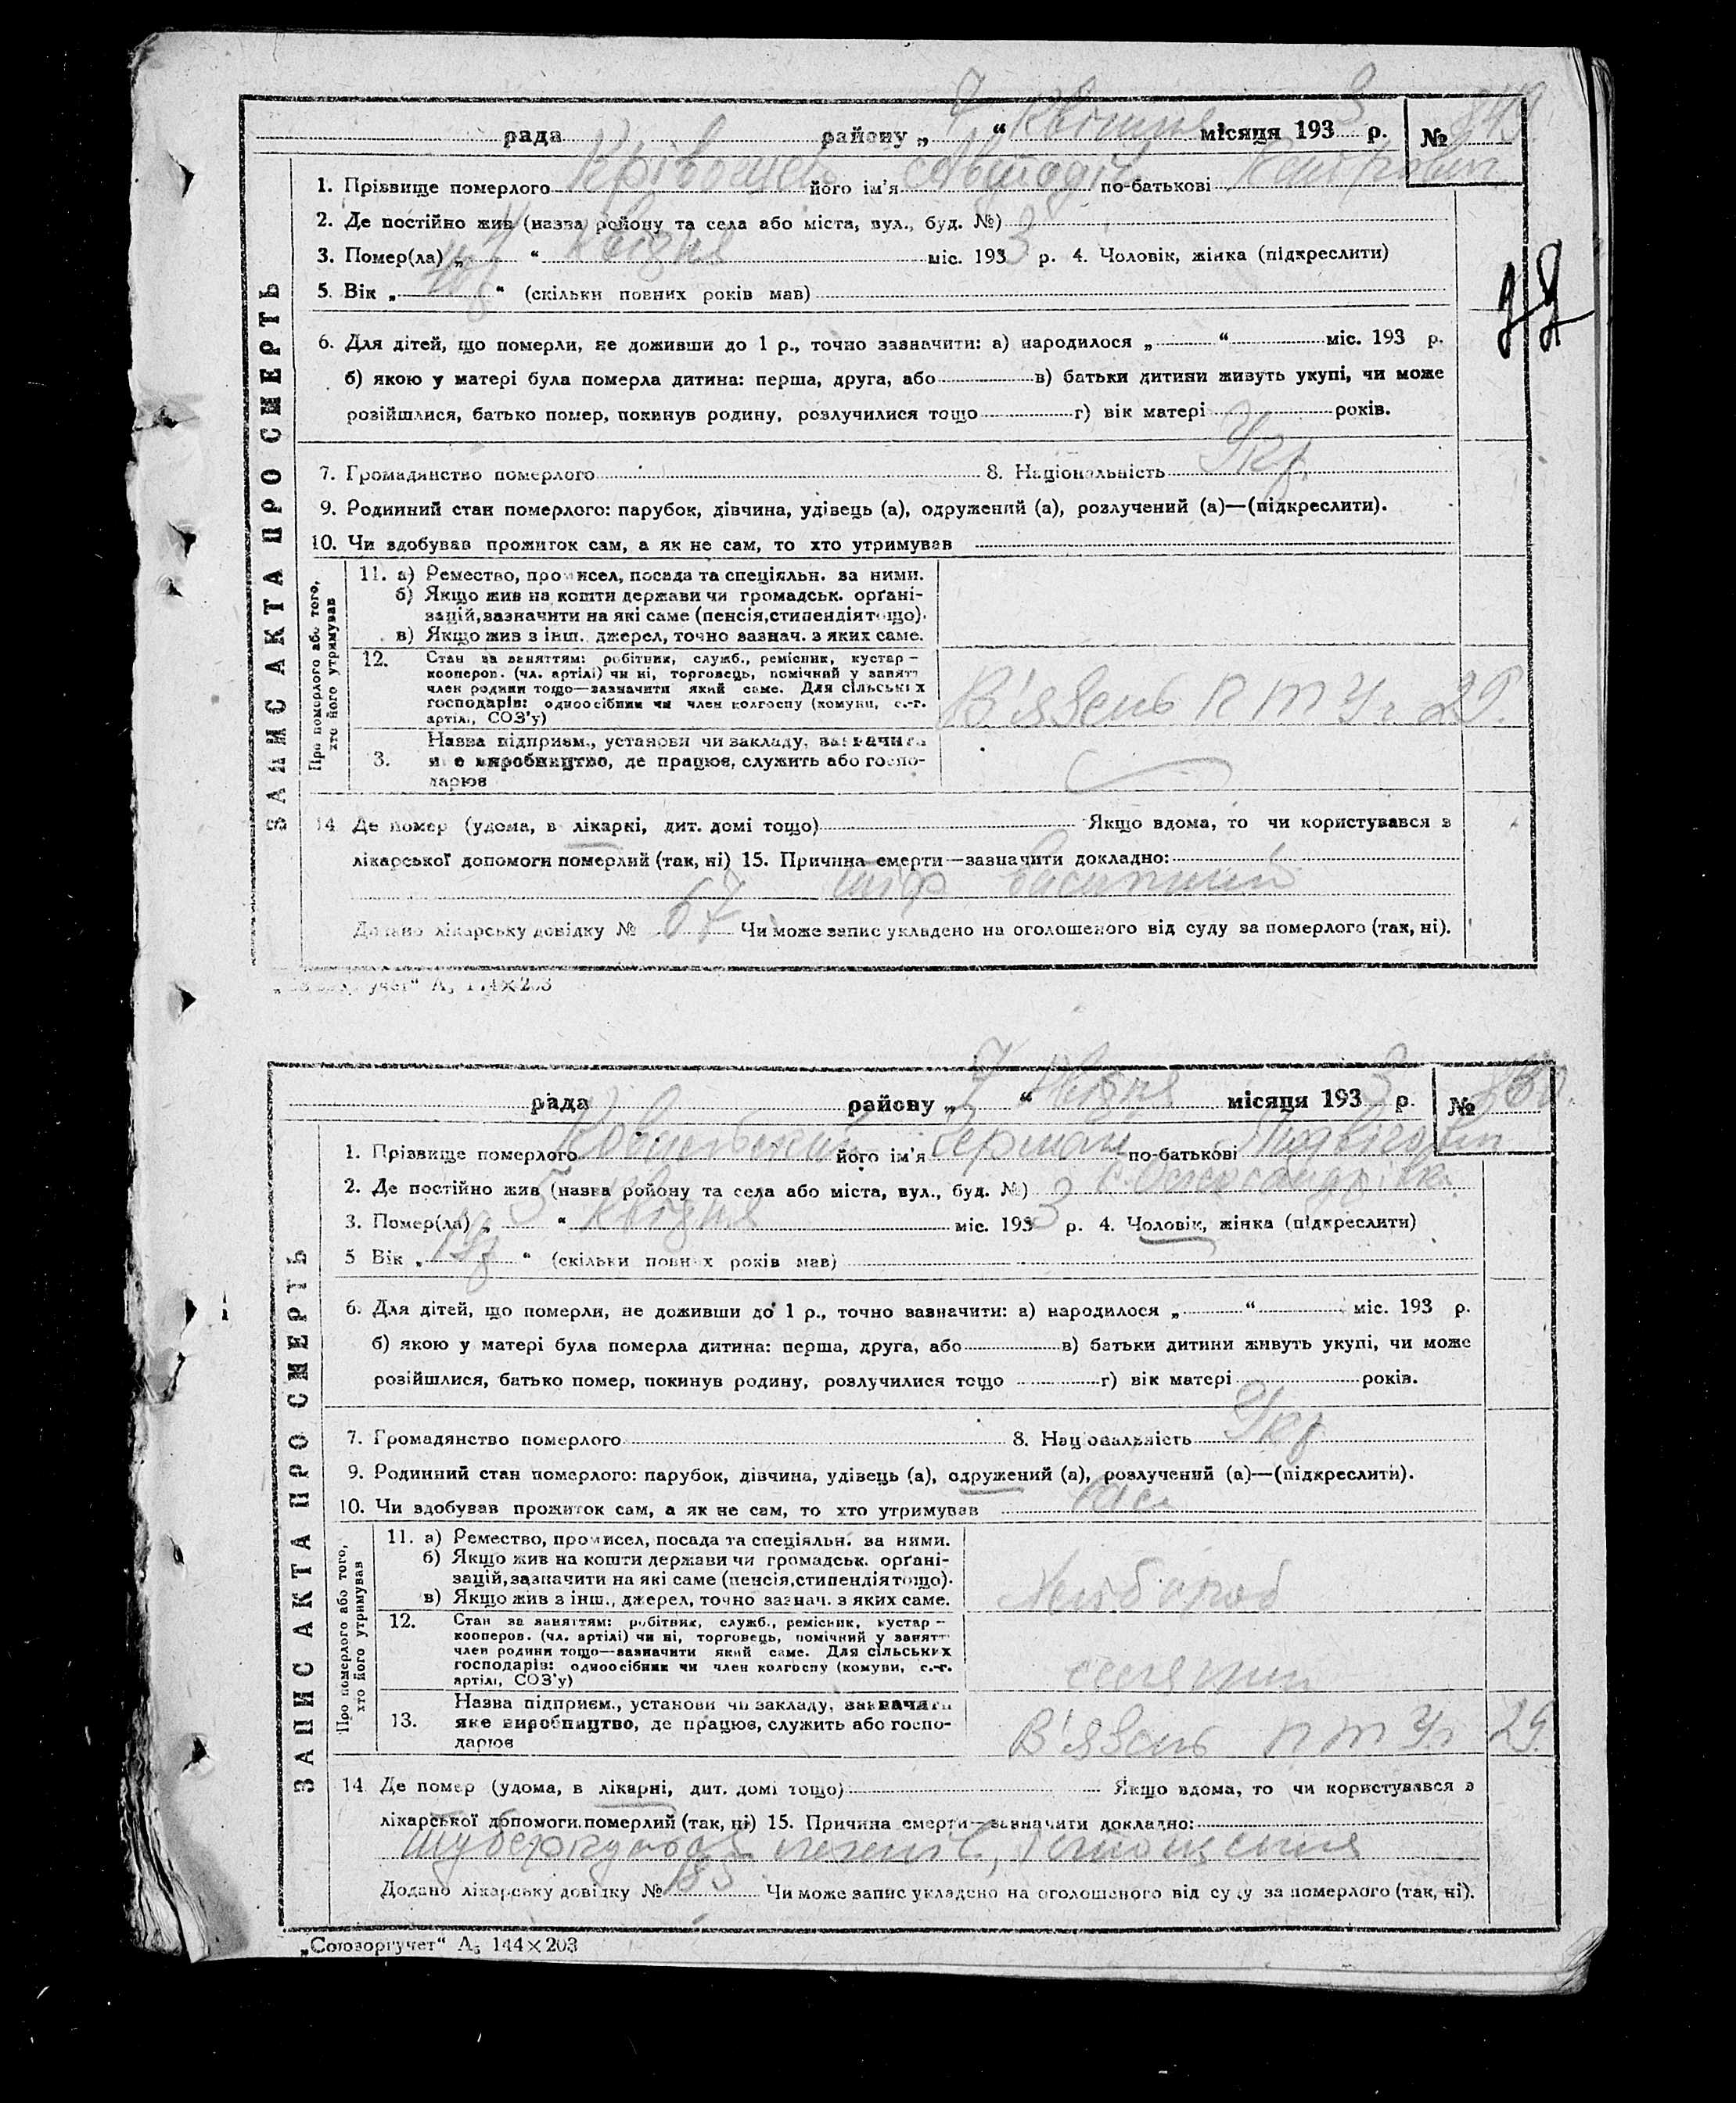 рада району „ 7 “ Квітня місяця 193 3 р. № 849
1. Прізвище померлого його ім'я по-батькові
2. Де постійно жив (назва району та села або міста, вул., буд. №)
3. Помер(ла) „ 4 “ Квітня міс. 193 3 р. 4. Чоловік, жінка (підкреслити)
5. Вік „ “ (скільки повних років мав)
6. Для дітей, що померли, не доживши до 1 р., точно зазначити: а) народилося „ “ міс. 193 р.
б) якою у матері була померла дитина: перша, друга, або в) батьки дитини живуть укупі, чи може
розійшлися, батько помер, покинув родину, розлучилися тощо г) вік матері років.
7. Громадянство померлого 8. Національність Укр.
9. Родинний стан померлого: парубок, дівчина, удівець (а), одружений (а), розлучений (а)—(підкреслити).
10. Чи здобував прожиток сам, а як не сам, то хто утримував
ЗАПИС АКТА ПРО СМЕРТЬ
Про померлого або того,
хто його утримував
11. а) Ремество, промисел, посада та спеціяльн. за ними.
б) Якщо жив на кошти держави чи громадськ. орґані-
зацій, зазначити на які саме (пенсія, стипендія тощо).
в) Якщо жив з інш. джерел, точно зазнач. з яких саме.
12. Стан за заняттям: робітник, служб., ремісник, кустар –
кооперов. (чл. артілі) чи ні, торговець, помічний у занятт
член родини тощо—зазначити який саме. Для сільських
господарів: одноосібник чи член колгоспу (комуни, с.-г.
артілі, СОЗ'у)
В'язень П Т У. 29.
3. Назва підприєм., установи чи закладу, зазначити
яке виробництво, де працює, служить або госпо-
дарює
14 Де помер (удома, в лікарні, дит. домі тощо) Якщо вдома, то чи користувався з
лікарської допомоги померлий (так, ні) 15. Причина смерти—зазначити докладно:
тиф
Додано лікарську довідку № 67 Чи може запис укладено на оголошеного від суду за померлого (так, ні).
рада району „ 7 “ Квітня місяця 193 3 р. №
1. Прізвище померлого Ковальський його ім'я Герман по-батькові
2. Де постійно жив (назва району та села або міста, вул., буд. №) с. Олександрівка
3. Помер(ла) „ 5 “ Квітня міс. 193 3 р. 4. Чоловік, жінка (підкреслити)
5 Вік „ “ (скільки повних років мав)
6. Для дітей, що померли, не доживши до 1 р., точно зазначити: а) народилося „ “ міс. 193 р.
б) якою у матері була померла дитина: перша, друга, або в) батьки дитини живуть укупі, чи може
розійшлися, батько помер, покинув родину, розлучилися тощо г) вік матері років.
7. Громадянство померлого 8. Національність Укр
9. Родинний стан померлого: парубок, дівчина, удівець (а), одружений (а), розлучений (а)—(підкреслити).
10. Чи здобував прожиток сам, а як не сам, то хто утримував сам
ЗАПИС АКТА ПРО СМЕРТЬ
Про померлого або того,
хто його утримував
11. а) Ремество, промисел, посада та спеціяльн. за ними.
б) Якщо жив на кошти держави чи громадськ. орґані-
зацій, зазначити на які саме (пенсія, стипендія тощо).
в) Якщо жив з інш., джерел, точно зазнач. з яких саме.
Хлібороб
12. Стан за заняттям: робітник, служб., ремісник, кустар –
кооперов. (чл. артілі) чи ні, торговець, помічний у занятт
член родини тощо—зазначити який саме. Для сільських
господарів: одноосібник чи член колгоспу (комуни, с.-г.
артілі, СОЗ'у)
селянин
13. Назва підприєм., установи чи закладу, зазначити
яке виробництво, де працює, служить або госпо-
дарює
В'язень П Т У. 29.
14 Де помер (удома, в лікарні, дит. домі тощо) Якщо вдома, то чи користувався з
лікарської допомоги померлий (так, ні) 15. Причина смерти—зазначити докладно:
туберкульоз легенів,
Додано лікарську довідку № 185 Чи може запис укладено на оголошеного від суду за померлого (так, ні).
„Союзоргучет“ А₅ 144×203